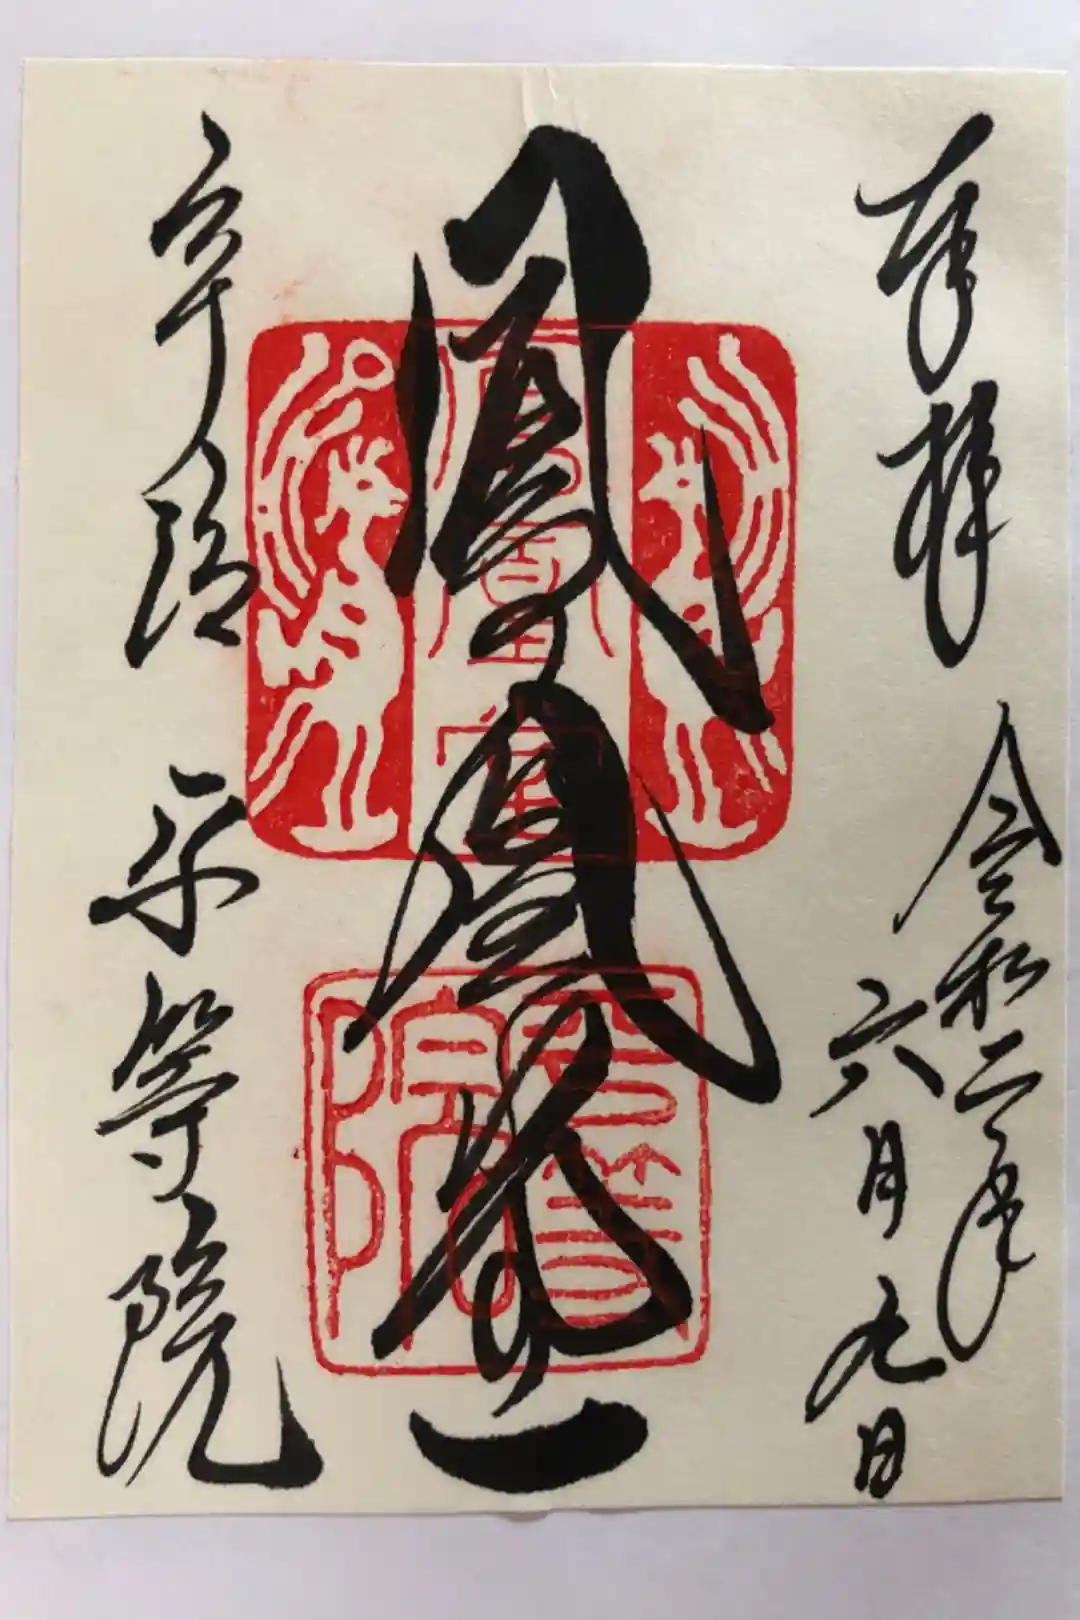 奉拝
令和二年
六月九日
鳳凰堂
宇治
平等院
鳳凰堂
平等院